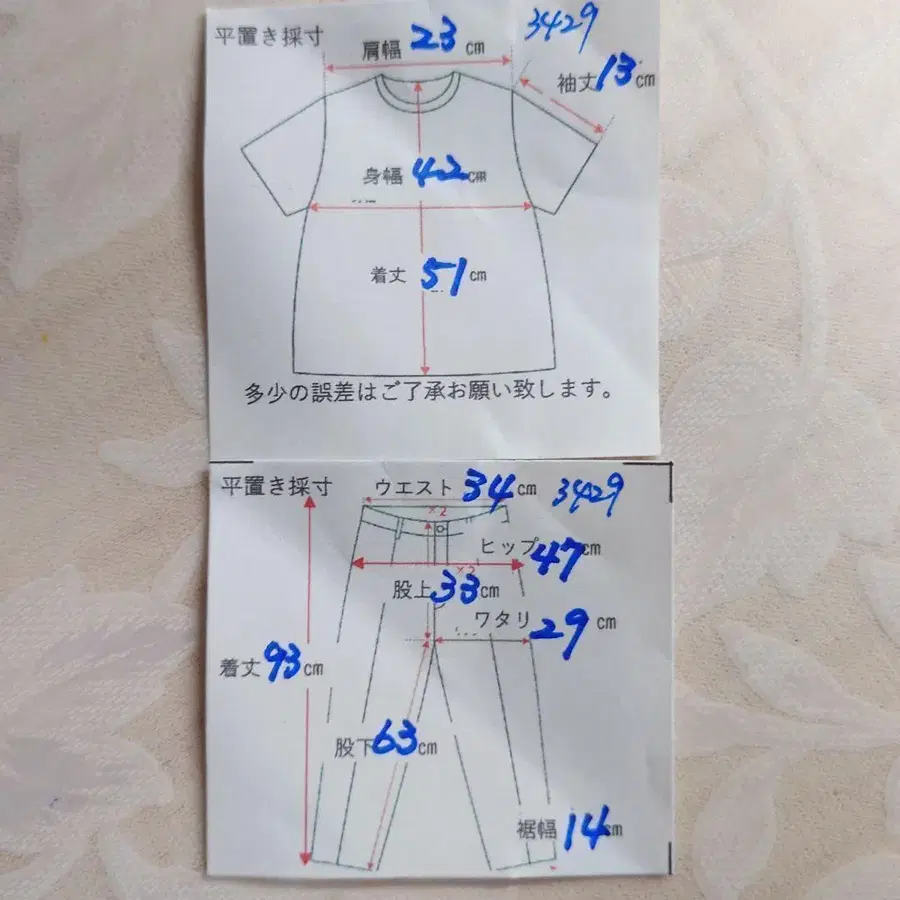 平置き採寸
肩幅 23 cm
3429
袖丈 13 cm
身幅 42 cm
着丈 51 cm
多少の誤差はご了承お願い致します。
平置き採寸
ウエスト 34 cm
3429
×2
ヒップ 47 cm
×2
股上 33 cm
ワタリ 29 cm
着丈 93 cm
股下 63 cm
裾幅 14 cm